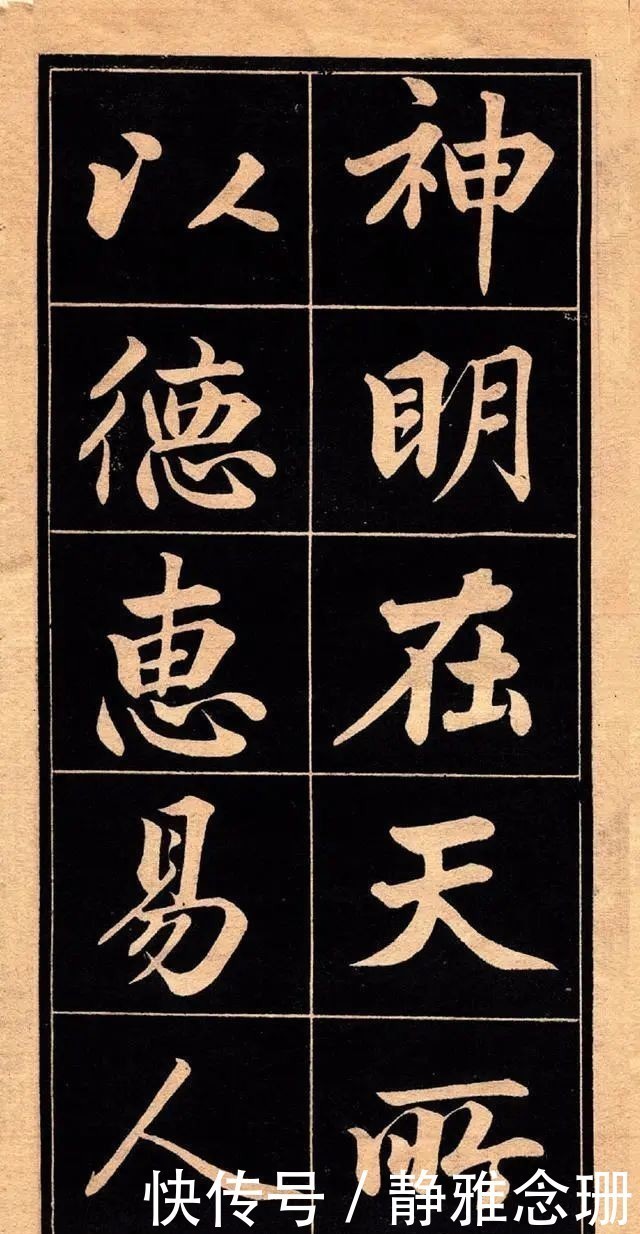 神明在天所
以德惠易人
快传号/静雅念珊